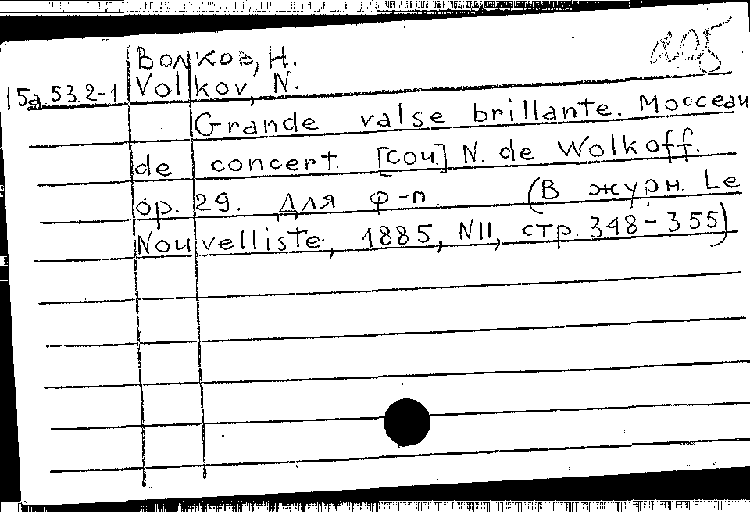 Волков, Н.
15а.53.2-1 Volkov, N.
Grande valse brillante. Mocceau
de concert [соч.] N. de Wolkoff.
op. 29. Для ф-п (В журн. Le
Nouvelliste, 1885, N11, стр. 348-355)